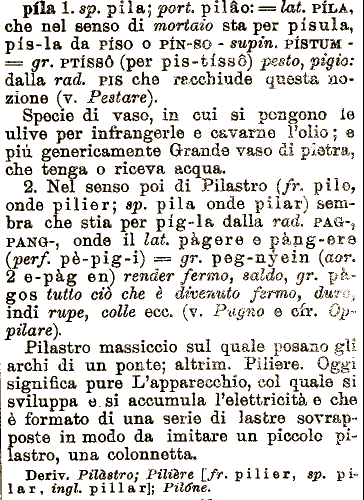 píla 1. sp. pila; port. pilâo: = lat. PÍLA,
che nel senso di mortaio sta per písula,
pís-la da PÍSO o PÍN-SO - supin. PÍSTUM -
= gr. PTÍSSÔ (per pis-tíssô) pesto, pigio:
dalla rad. PIS che racchiude questa no-
zione (v. Pestare).
Specie di vaso, in cui si pongono le
ulive per infrangerle e cavarne l'olio; e
più genericamente Grande vaso di pietra,
che tenga o riceva acqua.
2. Nel senso poi di Pilastro (fr. pile,
onde pilier; sp. pila onde pilar) sem-
bra che stia per píg-la dalla rad. PAG-,
PANG-, onde il lat. pàgere e pàng-ere
(perf. pè-pig-i) = gr. peg-nỳein (aor.
2 e-pàg en) render fermo, saldo, gr. pà-
gos tutto ciò che è divenuto fermo, duro,
indi rupe, colle ecc. (v. Pugno e cfr. Op-
pilare).
Pilastro massiccio sul quale posano gli
archi di un ponte; altrim. Piliere. Oggi
significa pure L'apparecchio, col quale si
sviluppa e si accumula l'elettricità e che
è formato di una serie di lastre sovrap-
poste in modo da imitare un piccolo pi-
lastro, una colonnetta.
Deriv. Pilàstro; Pilière [fr. pilier, sp. pi-
lar, ingl. pillar]; Pilóne.